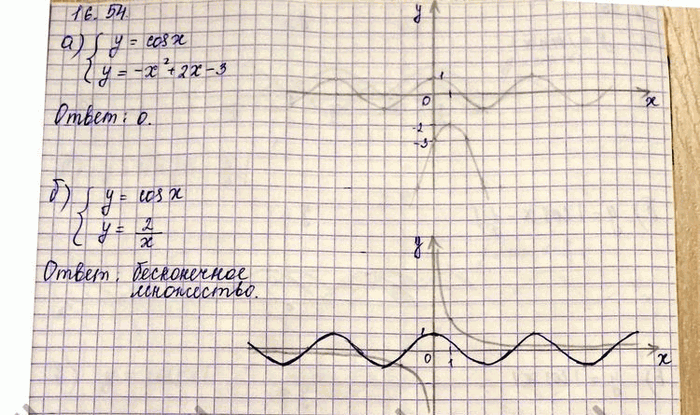 16.54.
а) { y = cosx
y = -x²+2x-3
Ответ: 0.
y
1
0 1 x
-2
-3
б) { y = cosx
y = 2/x
Ответ. бесконечное
множество.
y
1
0 1 x